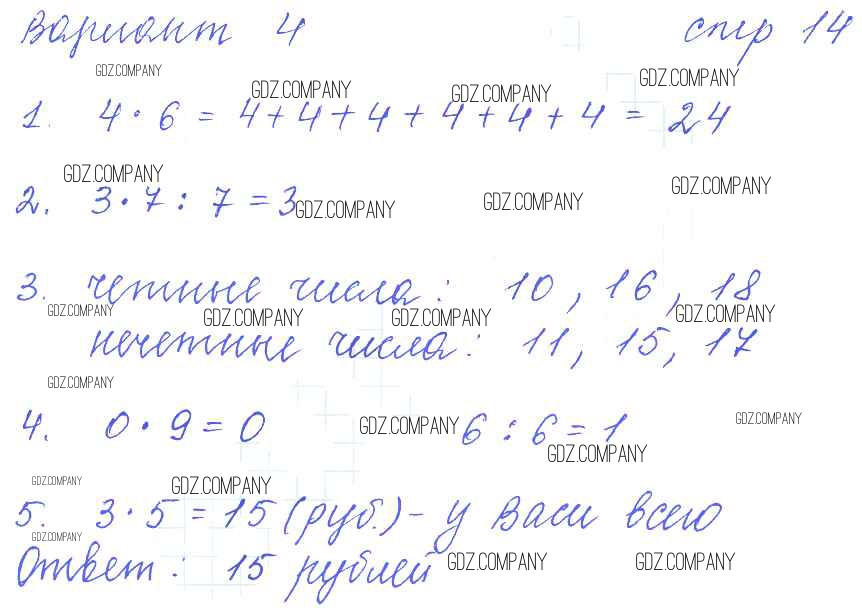 Вариант 4 стр 14
GDZ.COMPANY GDZ.COMPANY GDZ.COMPANY GDZ.COMPANY
1. 4 · 6 = 4 + 4 + 4 + 4 + 4 + 4 = 24
GDZ.COMPANY GDZ.COMPANY
2. 3 · 7 : 7 = 3 GDZ.COMPANY GDZ.COMPANY
3. четные числа: 10, 16, 18
GDZ.COMPANY GDZ.COMPANY GDZ.COMPANY GDZ.COMPANY
нечетные числа: 11, 15, 17
GDZ.COMPANY
4. 0 · 9 = 0 GDZ.COMPANY 6 : 6 = 1 GDZ.COMPANY
GDZ.COMPANY
GDZ.COMPANY GDZ.COMPANY
5. 3 · 5 = 15 (руб.) - у Васи всего
GDZ.COMPANY
Ответ: 15 рублей GDZ.COMPANY GDZ.COMPANY